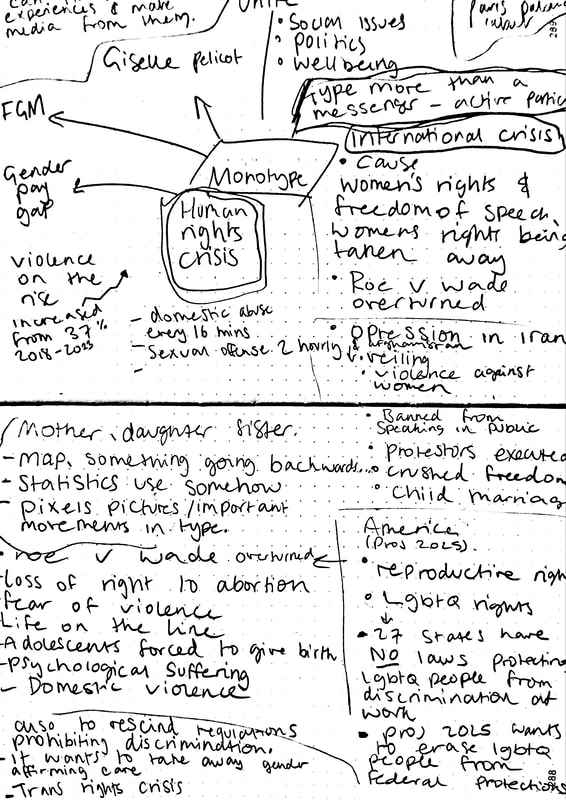 experiences & make
media from them.
Unite
• Social issues
• Politics
• Wellbeing
289
Giselle pelicot
Type more than a
messenger - active partic
FGM
Monotype
Gender
pay
gap
Human
rights
crisis
violence
on the
rise
increased
from 37%
2018-2023
- domestic abuse
every 16 mins
- Sexual offense 2 hourly
International crisis
• Cause
women's rights &
freedom of speech,
womens rights being
taken away
• Roe v wade
overturned
• Opression in Iran
& afghanistan
↓• veiling
• violence against
women
• Banned from
speaking in public
• Protestors executed
• crushed freedom
• Child marriag
Mother, daughter sister.
- Map, something going backwards...
- Statistics use somehow
- pixels pictures/important
movements in type.
• roe v wade overturned
- loss of right to abortion
fear of violence
Life on the line
- Adolescents forced to give birth
- psychological suffering
- Domestic violence
also to rescind regulations
prohibiting discrimination.
- It wants to take away gender
affirming care
- Trans rights crisis
America
(Proj 2025).
• reproductive righ
• Lgbtq rights
↓
• 27 states have
NO laws protecting
lgbtq people from
discrimination at
work
• proj 2025 wants
to erase lgbtq
people from
Federal protections
288